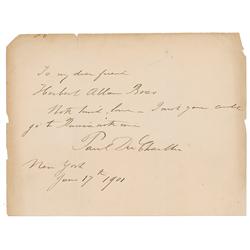 To my dear friend
Herbert Allan Boas
With kind love - I wish you could
go to
Paul Du Chaillu
New York
June 17th 1901